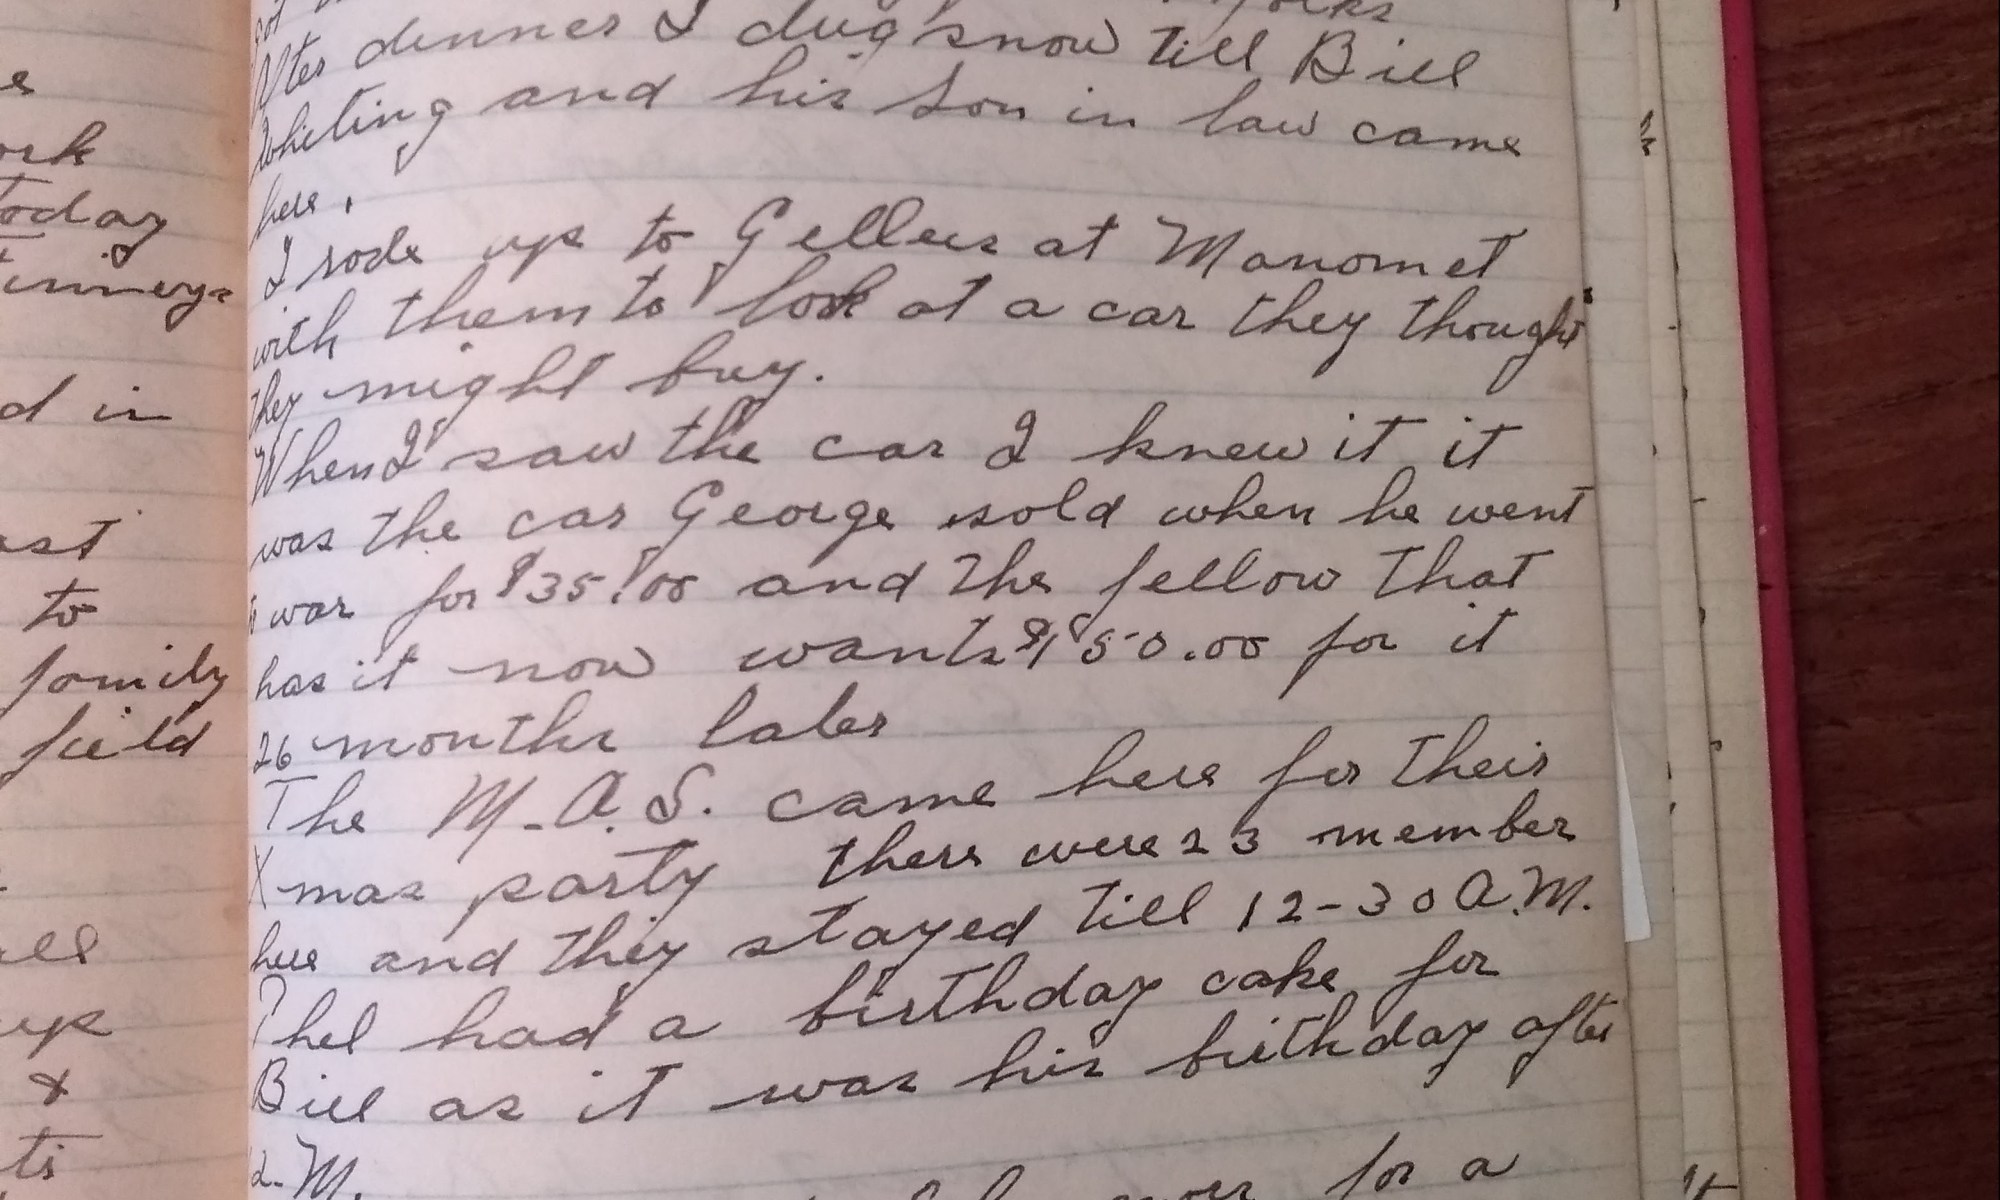 e
ork
today
d in
ast
to
family
field
up
&
folks
After dinner I dug snow till Bill
Whiting and his son in law came
here.
I rode up to Gellers at Manomet
with them to look at a car they thought
they might buy.
When I saw the car I knew it it
was the car George sold when he went
to war for $35.00 and the fellow that
has it now wants $150.00 for it
26 months later
The M.A.S. came here for their
Xmas party there were 23 member
here and they stayed till 12-30 A.M.
Phel had a birthday cake for
Bill as it was his birthday after
12-M.
for a